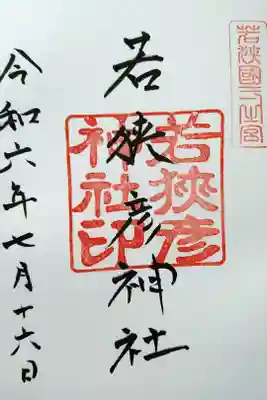 若狭國一之宮
若狭彦神社
若狹彦
神社印
令和六年七月十六日